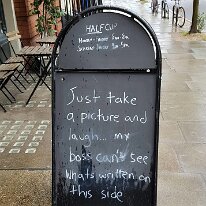 HALFCUP
Just take
a picture and
laugh... my
boss can't see
whats written on
this side